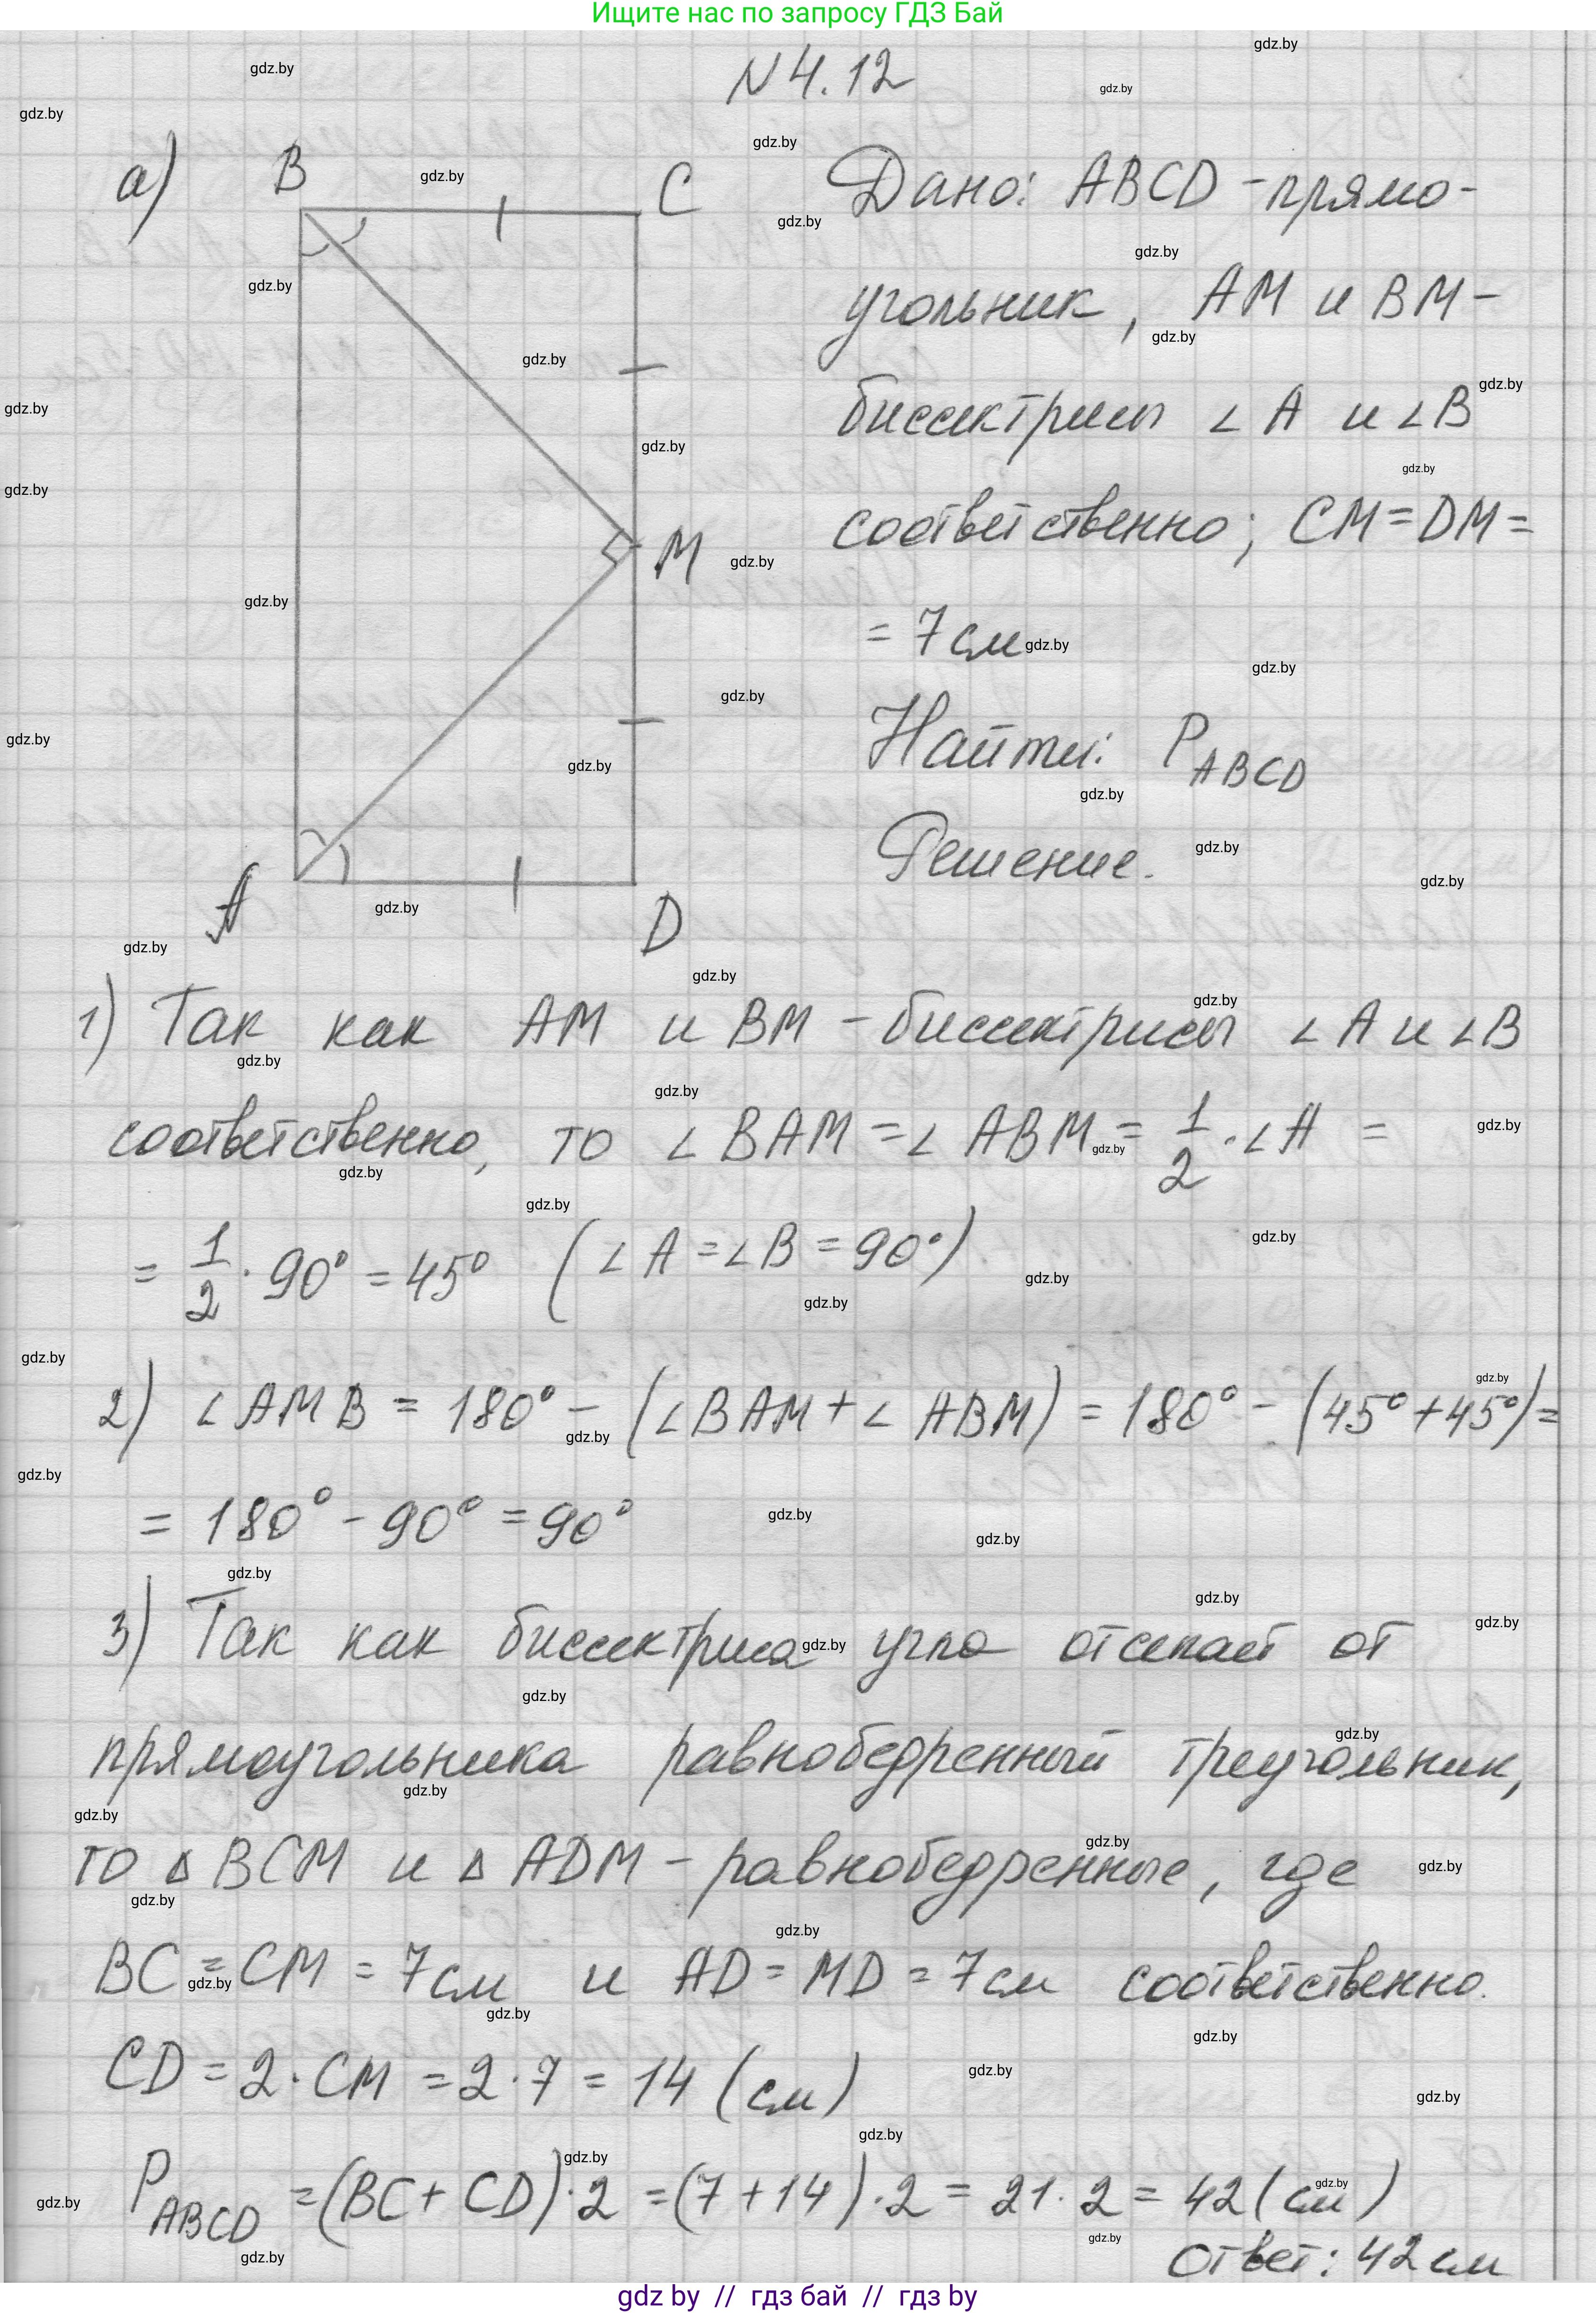 Ищите нас по запросу ГДЗ Бай
N 4.12
а)
B
C
M
A
D
Дано: ABCD - прямо-
угольник, AM и BM -
биссектрисы ∠A и ∠B
соответственно; CM = DM =
= 7 см
Найти: P ABCD
Решение.
1) Так как AM и BM - биссектрисы ∠A и ∠B
соответственно, то ∠BAM = ∠ABM = 1/2 · ∠A =
= 1/2 · 90° = 45° (∠A = ∠B = 90°)
2) ∠AMB = 180° - (∠BAM + ∠ABM) = 180° - (45° + 45°) =
= 180° - 90° = 90°
3) Так как биссектриса угла отсекает от
прямоугольника равнобедренный треугольник,
то Δ BCM и Δ ADM - равнобедренные, где
BC = CM = 7 см и AD = MD = 7 см соответственно.
CD = 2 · CM = 2 · 7 = 14 (см)
P ABCD = (BC + CD) · 2 = (7 + 14) · 2 = 21 · 2 = 42 (см)
Ответ: 42 см
gdz by // гдз бай // гдз by